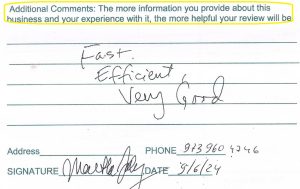 Additional Comments: The more information you provide about this
business and your experience with it, the more helpful your review will be
Fast.
Efficient,
Very Good
Address PHONE 973 960 4746
SIGNATURE DATE 9/6/24